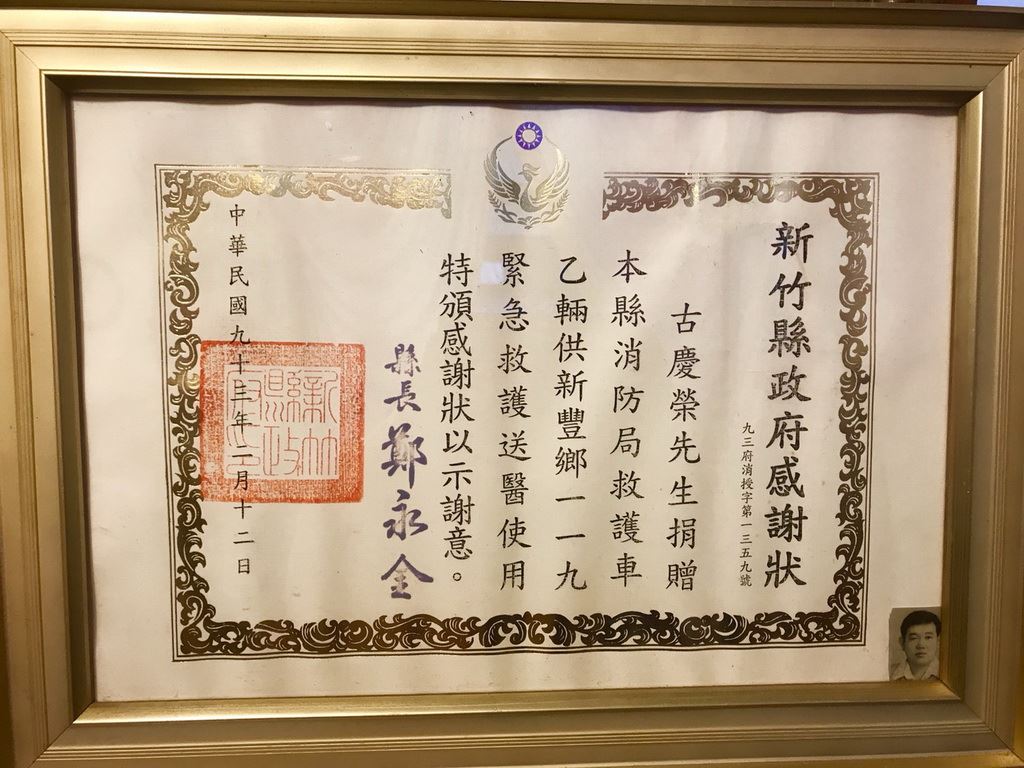 新竹縣政府感謝狀
九三府消授字第一三五九號
古慶榮先生捐贈
本縣消防局救護車
乙輛供新豐鄉一一九
緊急救護送醫使用
特頒感謝狀以示謝意。
縣長鄭永金
中華民國九十三年二月十二日